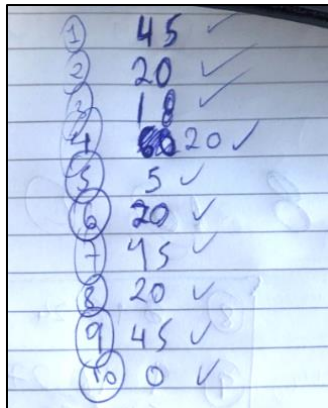 1 45 ✓
2 20 ✓
3 18 ✓
4 20 ✓
5 5 ✓
6 20 ✓
7 45 ✓
8 20 ✓
9 45 ✓
10 0 ✓